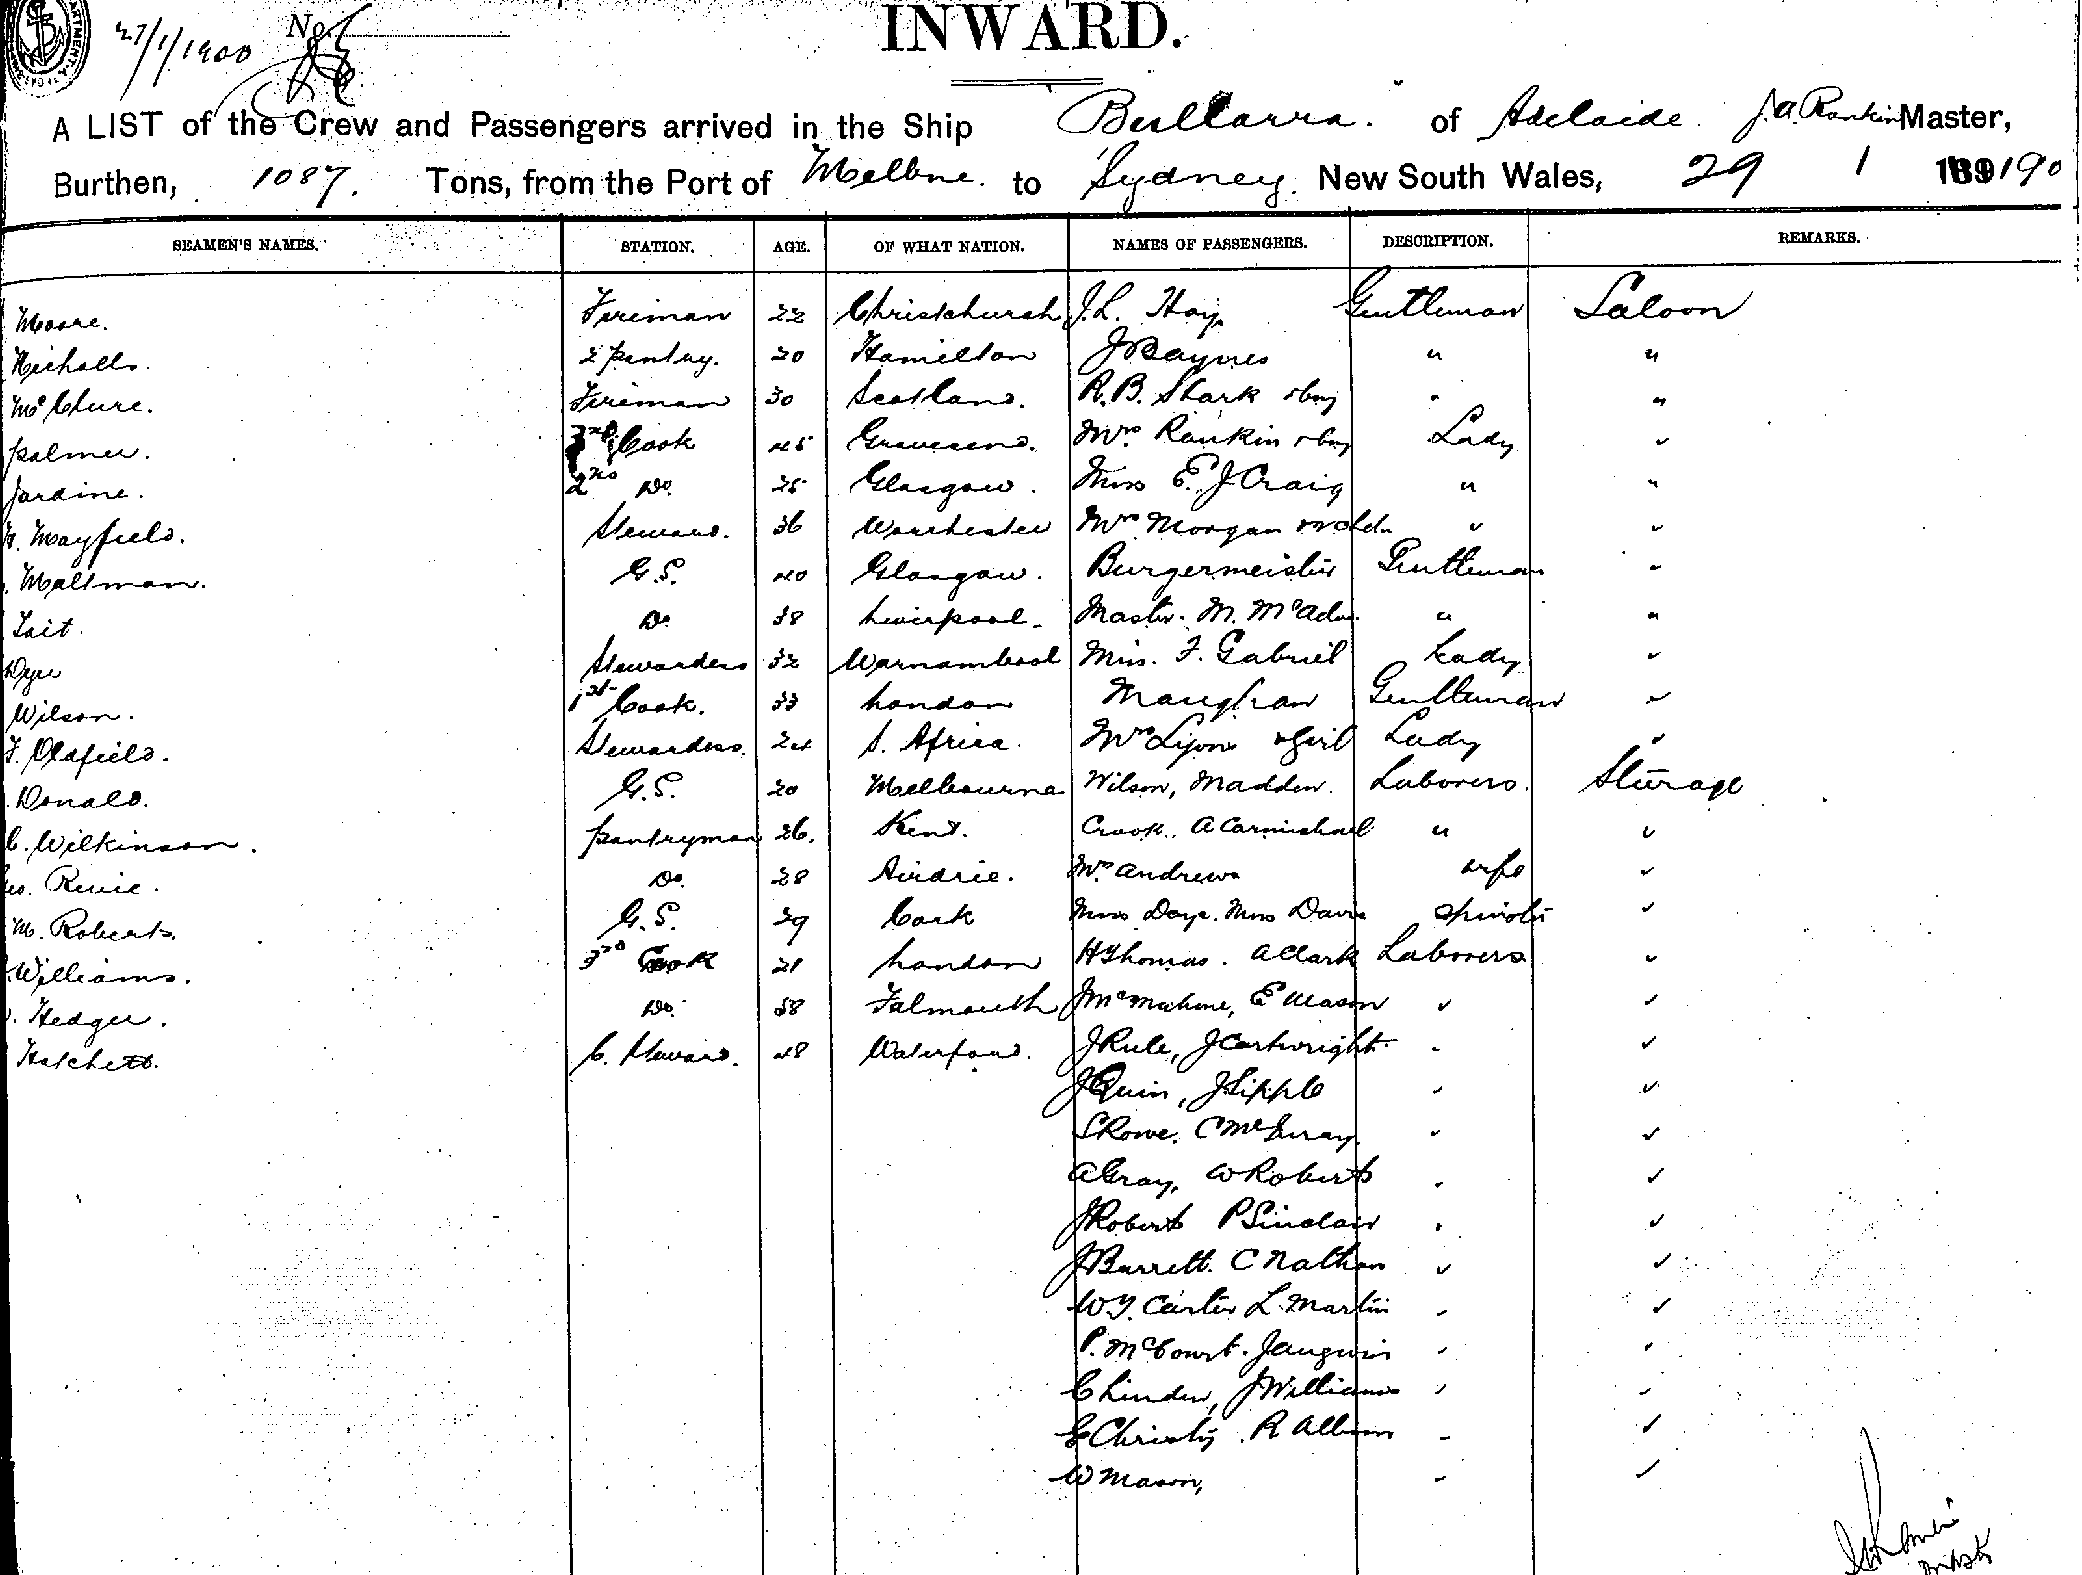 27/1/1900 No.
INWARD.
A LIST of the Crew and Passengers arrived in the Ship Bullarra. of Adelaide. J.A. Rankin Master,
Burthen, 1087. Tons, from the Port of Melbne. to Sydney. New South Wales, 29 1 190
SEAMEN'S NAMES. STATION. AGE. OF WHAT NATION. NAMES OF PASSENGERS. DESCRIPTION. REMARKS.
Moore. Fireman 22 Christchurch J.L. Hay Gentleman Saloon
Nicholls. 2 pantry. 20 Hamilton J Baynes " "
McClure. Fireman 30 Scotland. R.B. Stark & boy " "
Palmer. 3rd Cook 45 Gravesend. Mrs Rankin & boy Lady "
Jardine. 2nd Do. 25 Glasgow. Miss E.J Craig " "
Mayfield. Steward. 36 Worchester Mrs Morgan " "
Maltman. G.S. 40 Glasgow. Burgermeister Gentleman "
Tait. Do 38 Liverpool. Master. M. McAdam " "
Dyer Stewardess 32 Warnambool Miss. F. Gabriel Lady "
Wilson. 1st Cook. 33 London Maughan Gentleman "
F. Oldfield. Stewardess. 24 S. Africa. Mrs Lyons & girl Lady "
Donald. G.S. 20 Melbourne Wilson, Madden. Laborers. Steerage
C. Wilkinson. Pantryman 26. Kent. Crook. A Carmichael " "
Renie. Do. 28 Airdrie. Mrs Andrews wife "
M. Roberts. G.S. 29 Cork Miss Daye. Miss Davis Spinster "
Williams. 3rd Cook 21 London H Thomas. A Clark Laborers "
Hedger. Do. 38 Falmouth J McMahone, E Mason " "
Hatchett. C. Steward. 48 Waterford. J Rule, J Cartwright " "
J Quin, J Sipple " "
S Rowe. C " "
A Gray, W Roberts " "
J Roberts P Sinclair " "
J Barrett. C Nathan " "
W.J. Carter L. Martin " "
P. McCourt. J Angwin " "
C Linder, J Williams " "
E Christy. R Allison " "
W Mason, " "